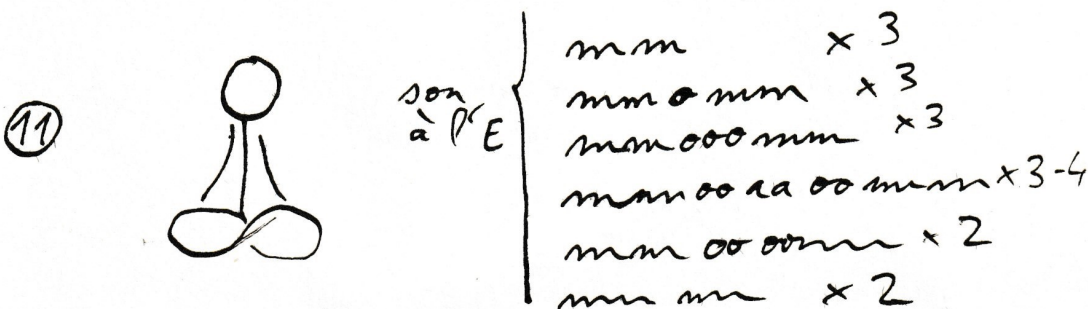 11
son
à l'E
mm x 3
mm o mm x 3
mm ooo mm x 3
mm oo aa oo mm x 3-4
mm oo oo mm x 2
mm mm x 2